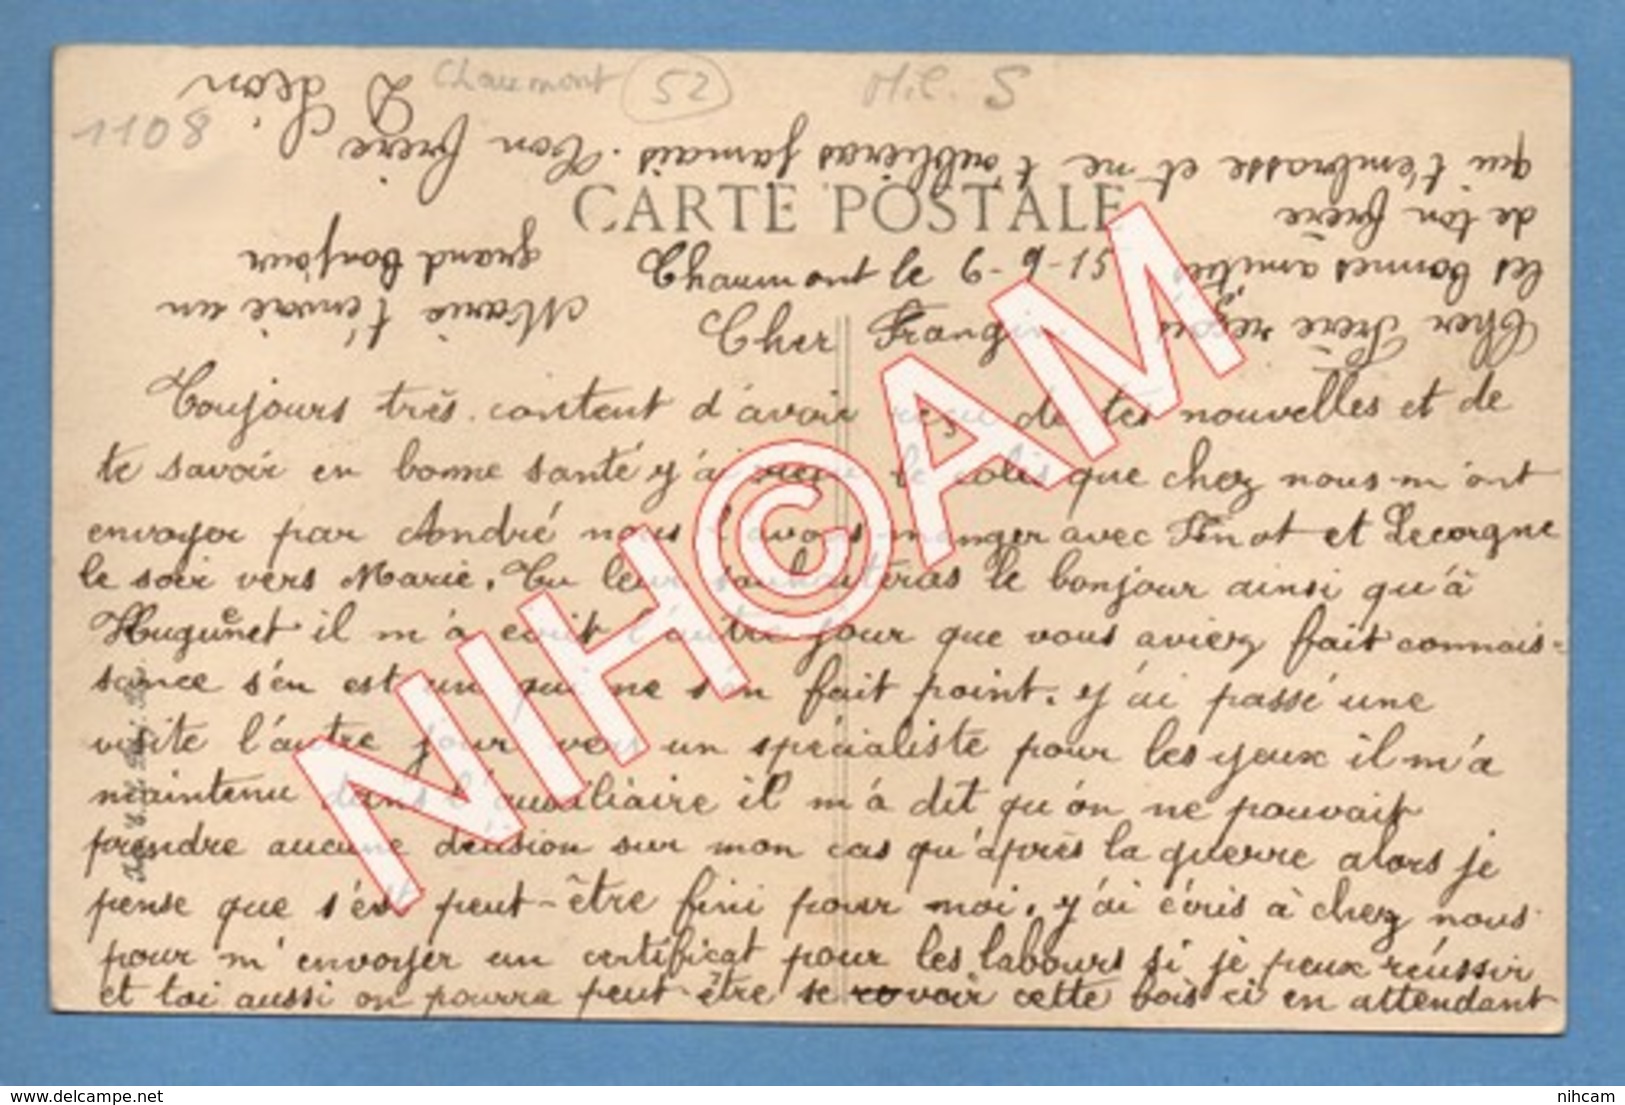 Chaumont 52 M.C. S
1108
CARTE POSTALE
Chaumont le 6-9-15
Cher Frangin.
Toujours très content d'avoir reçu de tes nouvelles et de
te savoir en bonne santé j'ai reçu le colis que chez nous m'ont
envoyer par André nous l'avons manger avec Finot et Lecorgne
le soir vers Marie. Tu leur souhaiteras le bonjour ainsi qu'à
Huguenet il m'a écrit l'autre jour que vous aviez fait connais-
sance s'en est un qui ne s'en fait point. j'ai passé une
visite l'autre jour vers un spécialiste pour les yeux il m'a
maintenu dans l'auxiliaire il m'a dit qu'on ne pouvait
prendre aucune décision sur mon cas qu'après la guerre alors je
pense que s'est peut-être fini pour moi. j'ai écris à chez nous
pour m'envoyer un certificat pour les labours si je peux réussir
et toi aussi on pourra peut-être se revoir cette bois ci en attendant
Cher Frère reçois
les bonnes amitiés
de ton frère
qui t'embrasse et ne t'oublieras jamais. Ton frère
D Léon
Marie t'envoie un
grand bonjour
NIH©AM
delcampe.net
nihcam